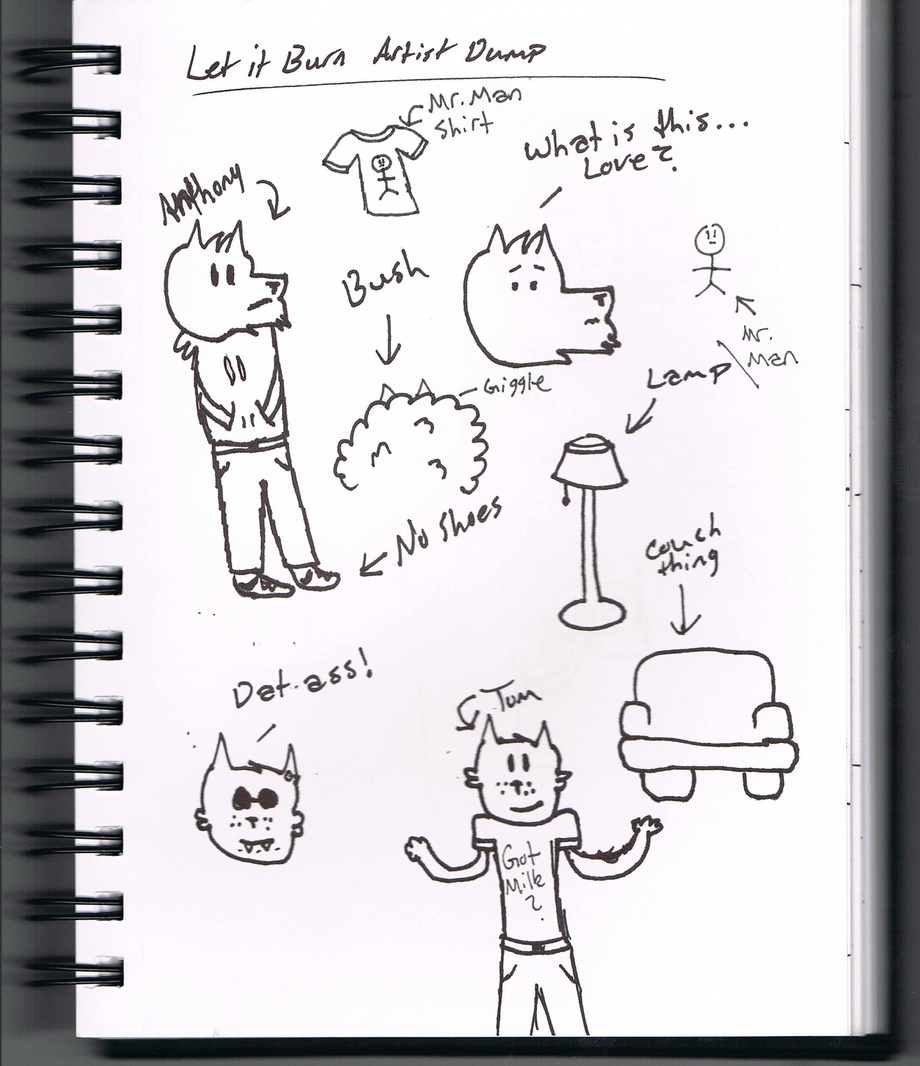 Let it Burn Artist Dump
Mr. Man
Shirt
What is this...
Love?
Anthony
Bush
Giggle
Mr.
Man
Lamp
No Shoes
Couch
thing
Dat-ass!
Tom
Got
Milk
?